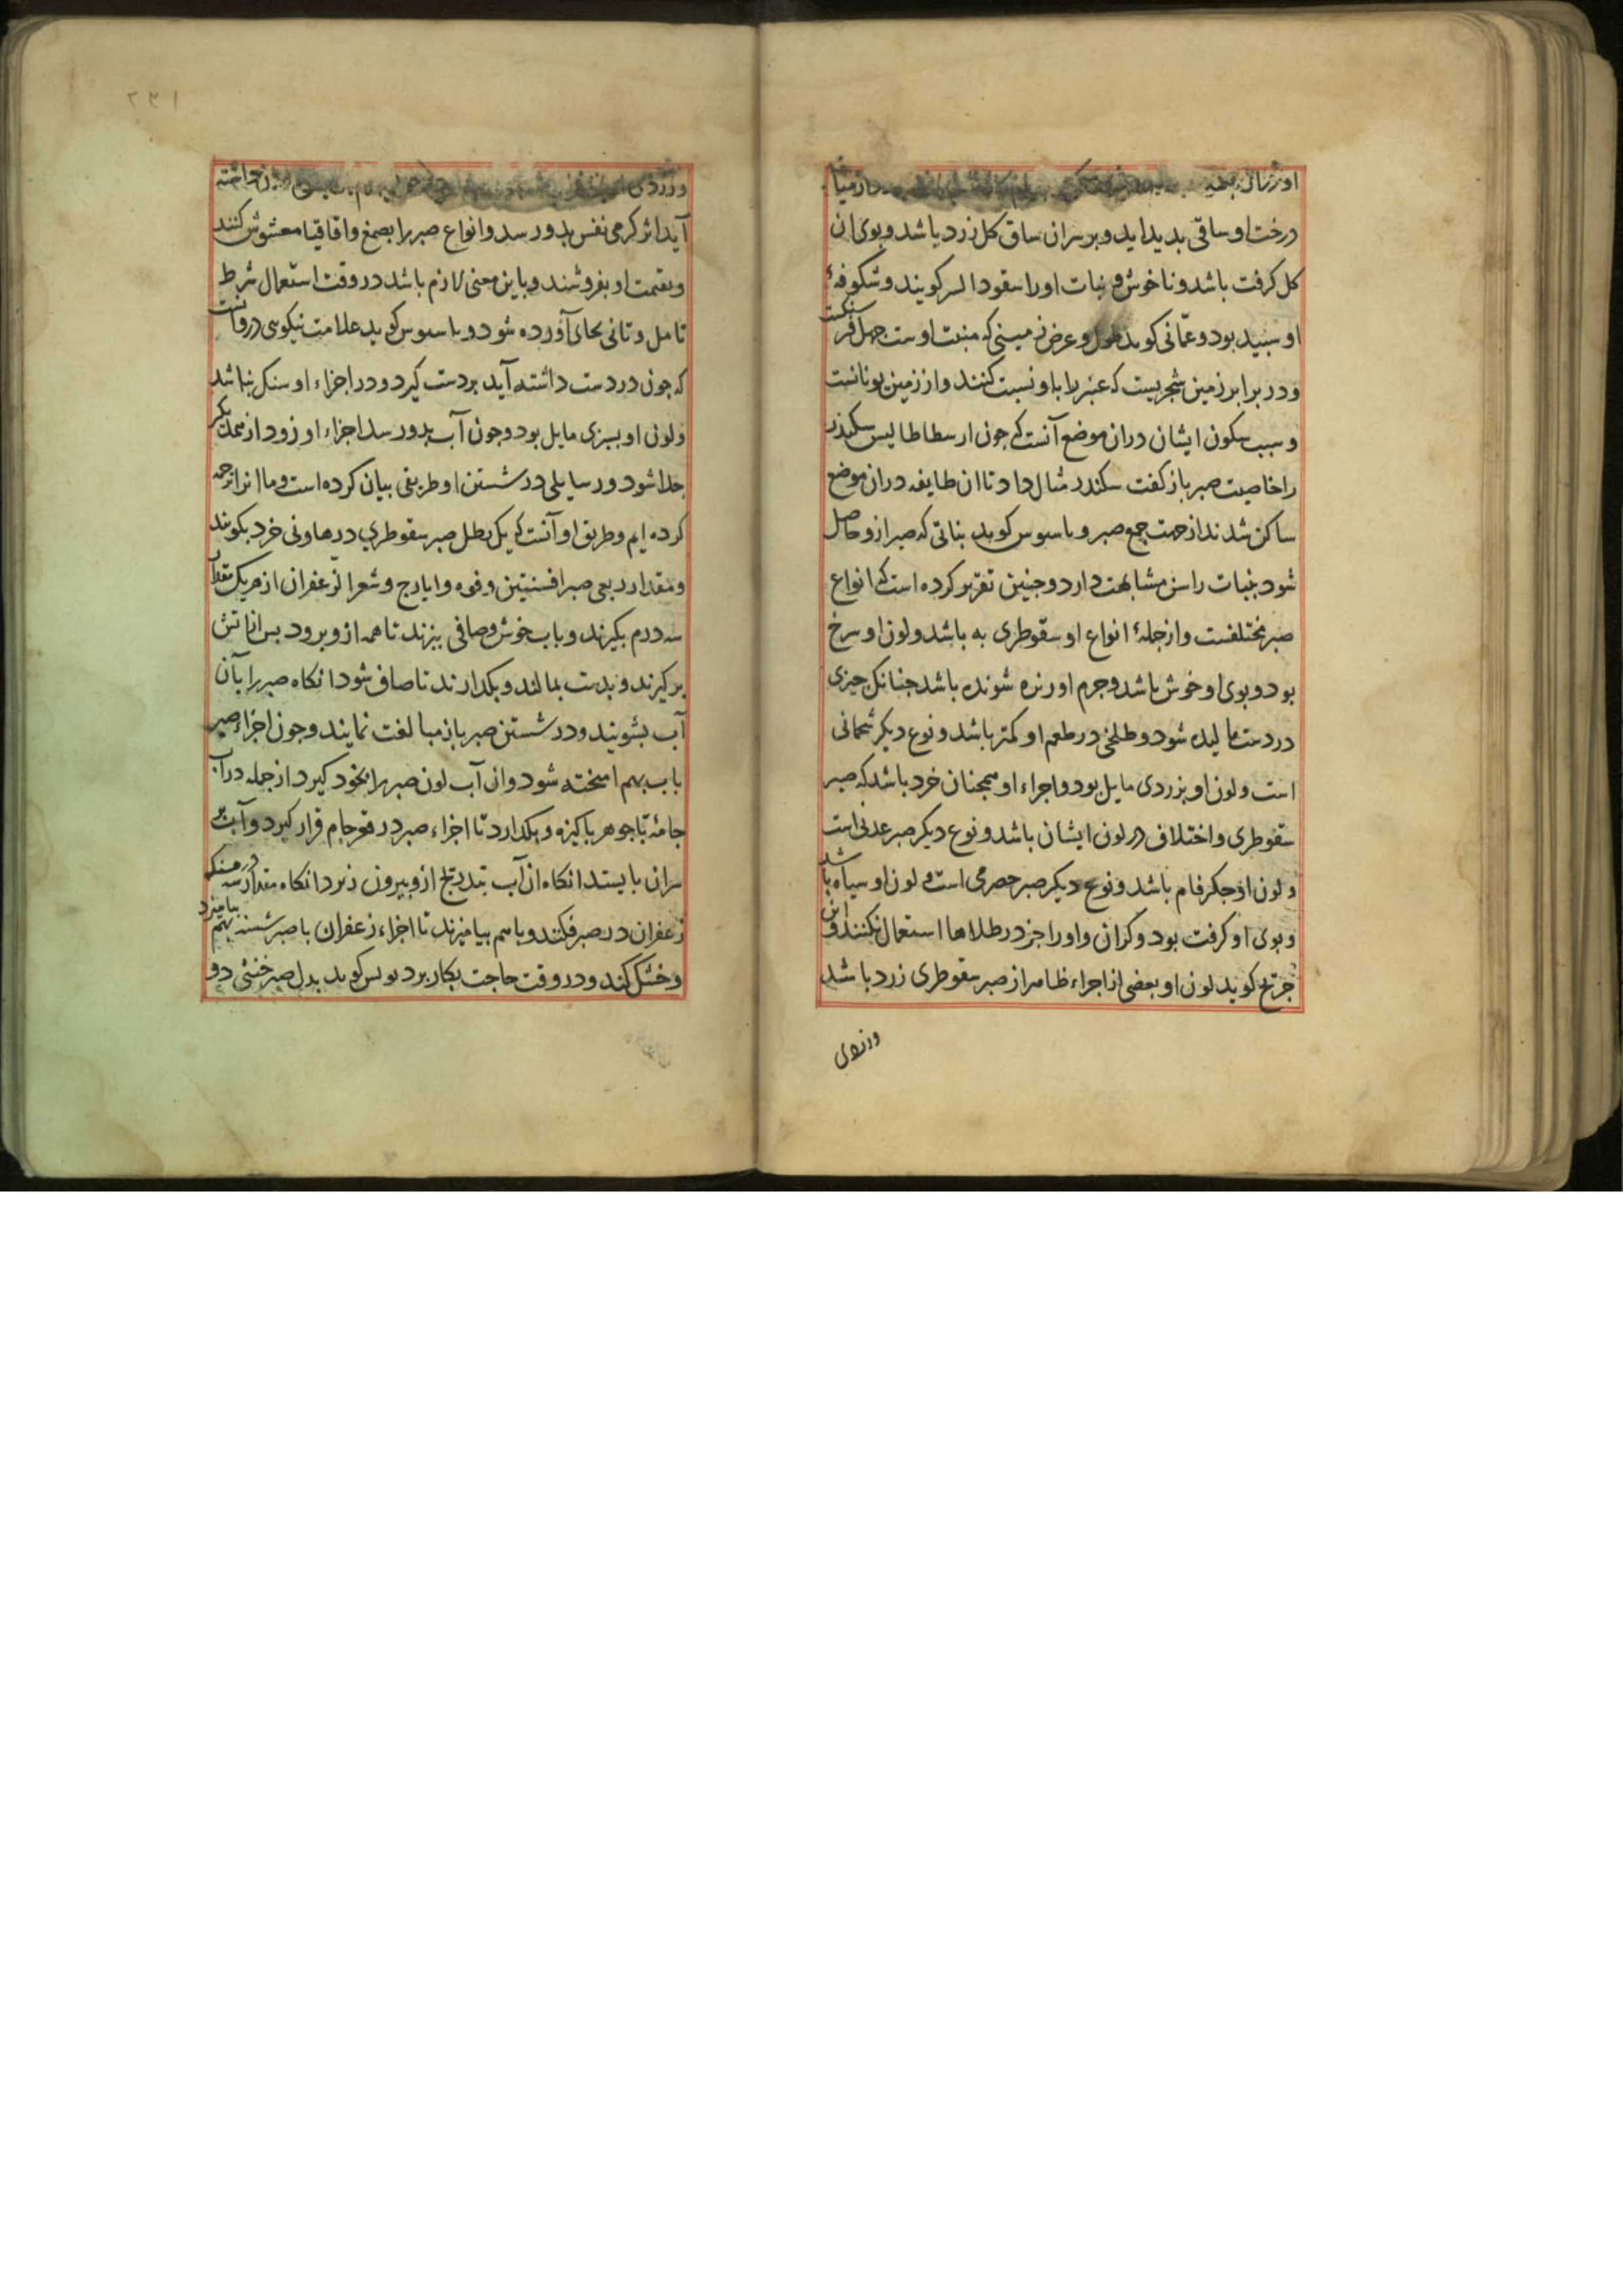 درخت او ساقی بدید اید و بر سر ان ساق کل زرد باشد و بوی ان
کل کرفت باشد و ناخوش و نبات او را سقود السر کویند و شکوفهٔ
او سپید بود و عمّانی کوید طول و عرض زمینی که منبت اوست جهل فرسنکست
و در برابر زمین شجریست که عنبر را باو نسبت کنند و از زمین یونانست
و سبب سکون ایشان دران موضع آنست که جون ارسطاطالیس سکندر
را خاصیت صبر باز کفت سکندر مثال داد تا ان طایفه دران موضع
ساکن شدند از جهت جمع صبر و باسوس کوید بناتی که صبر ازو حاصل
شود بنبات راسن مشابهت دارد و جنین تقریر کرده است که انواع
صبر مختلفست و از جملهٔ انواع او سقوطری به باشد و لون او سرخ
بود و بوی او خوش باشد و جرم او ریزه شونده باشد جنانک جیزی
در دست مالیده شود و طلخی در طعم او کمتر باشد و نوع دیکر شمانی
است و لون او بزردی مایل بود و اجراء او همجنان خرد باشد که صبر
سقوطری و اختلاف در لون ایشان باشد و نوع دیکر صبر عدنی است
و لون او جکرفام باشد و نوع دیکر صبر حصرمی است و لون او سیاه باشد
و بوی او کرفت بود و کران و او را جز در طلاها استعمال نکنند و ابن
جریج کوید لون او بعضی از اجراء ظاهر از صبر سقوطری زرد باشد
و زردی
و زردی
آید اثر کرمی نفس بدو رسد و انواع صبر را بصمغ و اقاقیا مغشوش کنند
و بقیمت او بفروشند و باین معنی لازم باشد در وقت استعمال شرط
تامل و تانی بجای آورده شود و باسوس کوید علامت نیکوی درو انست
که جون در دست داشته آید بر دست کیرد و در اجزاء او سنک نباشد
و لون او بسبزی مایل بود و جون آب بدو رسد اجزاء او زود از یکدیکر
جدا شود و رسایلی در شستن او طریقی بیان کرده است و ما انرا ترجمه
کرده ایم و طریق او آنست که یک رطل صبر سقوطری در هاونی خرد بکویند
و مقدار ربعی صبر افسنتین و فوه و ایارج و شعر الزعفران از هریک مقدار
سه درم بکیرند و باب خوش و صافی بپزند تا همه ازو برود بس از اتش
بر کیرند و بدست بمالند و بکدارند تا صاف شود انکاه صبر را بآن
آب بشویند و در شستن صبر باز مبالغت نمایند و جون اجزاء صبر
باب بهم امیخته شود و ان آب لون صبر را بخود کیرد از جمله دران
جامهٔ با جوهر باکیزه و بکدارد تا اجزاء صبر در قعر جام قرار کیرد و آب بر
سر ان بایستد انکاه ان آب بتدریج ازو بیرون ریزد انکاه مقدار سه درمسنک
زعفران در صبر فکند و باهم بیامیزند تا اجزاء زعفران با صبر شسته بهم بیامیزد
و خشک کند و در وقت حاجت بکار برد بولس کوید بدل صبر خنثی دو